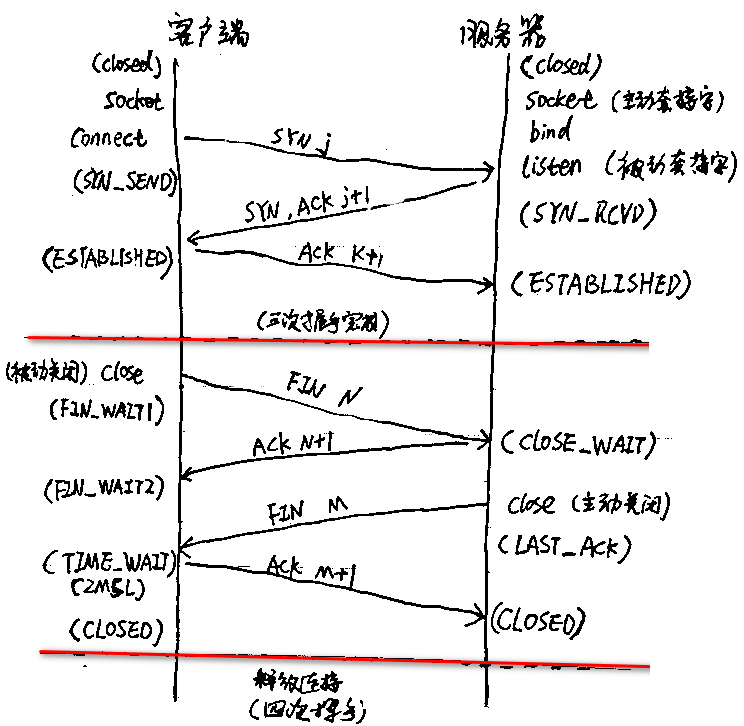 客户端 服务器
(closed) (closed)
socket socket (主动套接字)
connect SYN j bind
listen (被动套接字)
(SYN_SEND) SYN, ACK j+1 (SYN_RCVD)
(ESTABLISHED) ACK K+1 (ESTABLISHED)
(三次握手完成)
(被动关闭) close FIN N
(FIN_WAIT1)
ACK N+1 (CLOSE_WAIT)
(FIN_WAIT2) FIN M close (主动关闭)
(LAST_ACK)
(TIME_WAIT) ACK M+1
(2MSL)
(CLOSED) (CLOSED)
释放连接
(四次挥手)